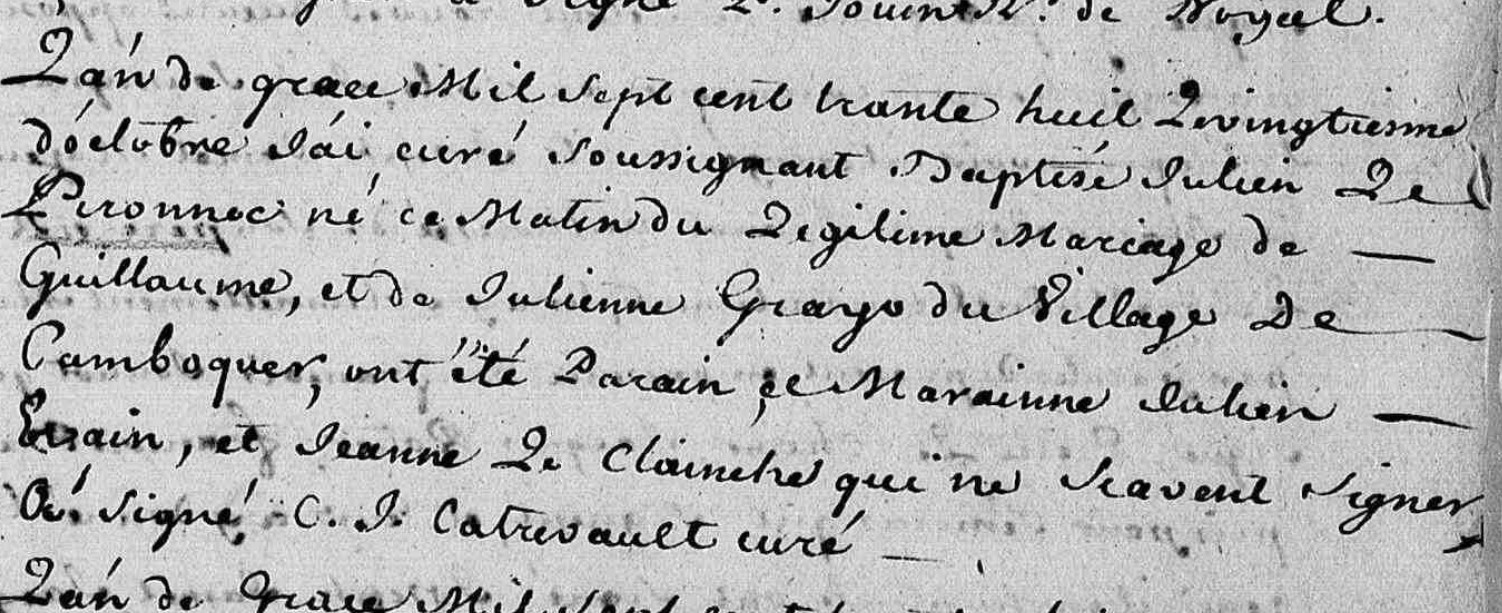 Signé Jouin R. de Noyal.
L'an de grace Mil Sept cent trante huit Le vingtiesme
d'octobre J'ai curé Soussignant Baptisé Julien Le
Peronnec né ce Matin du Legitime Mariage de —
Guillaume, et de Julienne Grayo du Village De —
Camboquer, ont été Parain, et Marainne Julien —
Evain, et Jeanne Le Clainche qui ne Scavent Signer,
Signé, C. J. Catrevault curé —
L'an de Grace Mil Sept cent